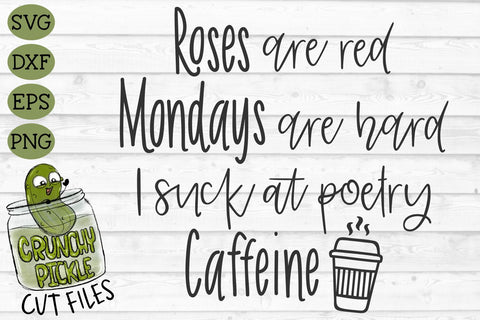 SVG
DXF
EPS
PNG
Roses are red
Mondays are hard
I suck at poetry
Caffeine
CRUNCHY
PICKLE
CUT FILES